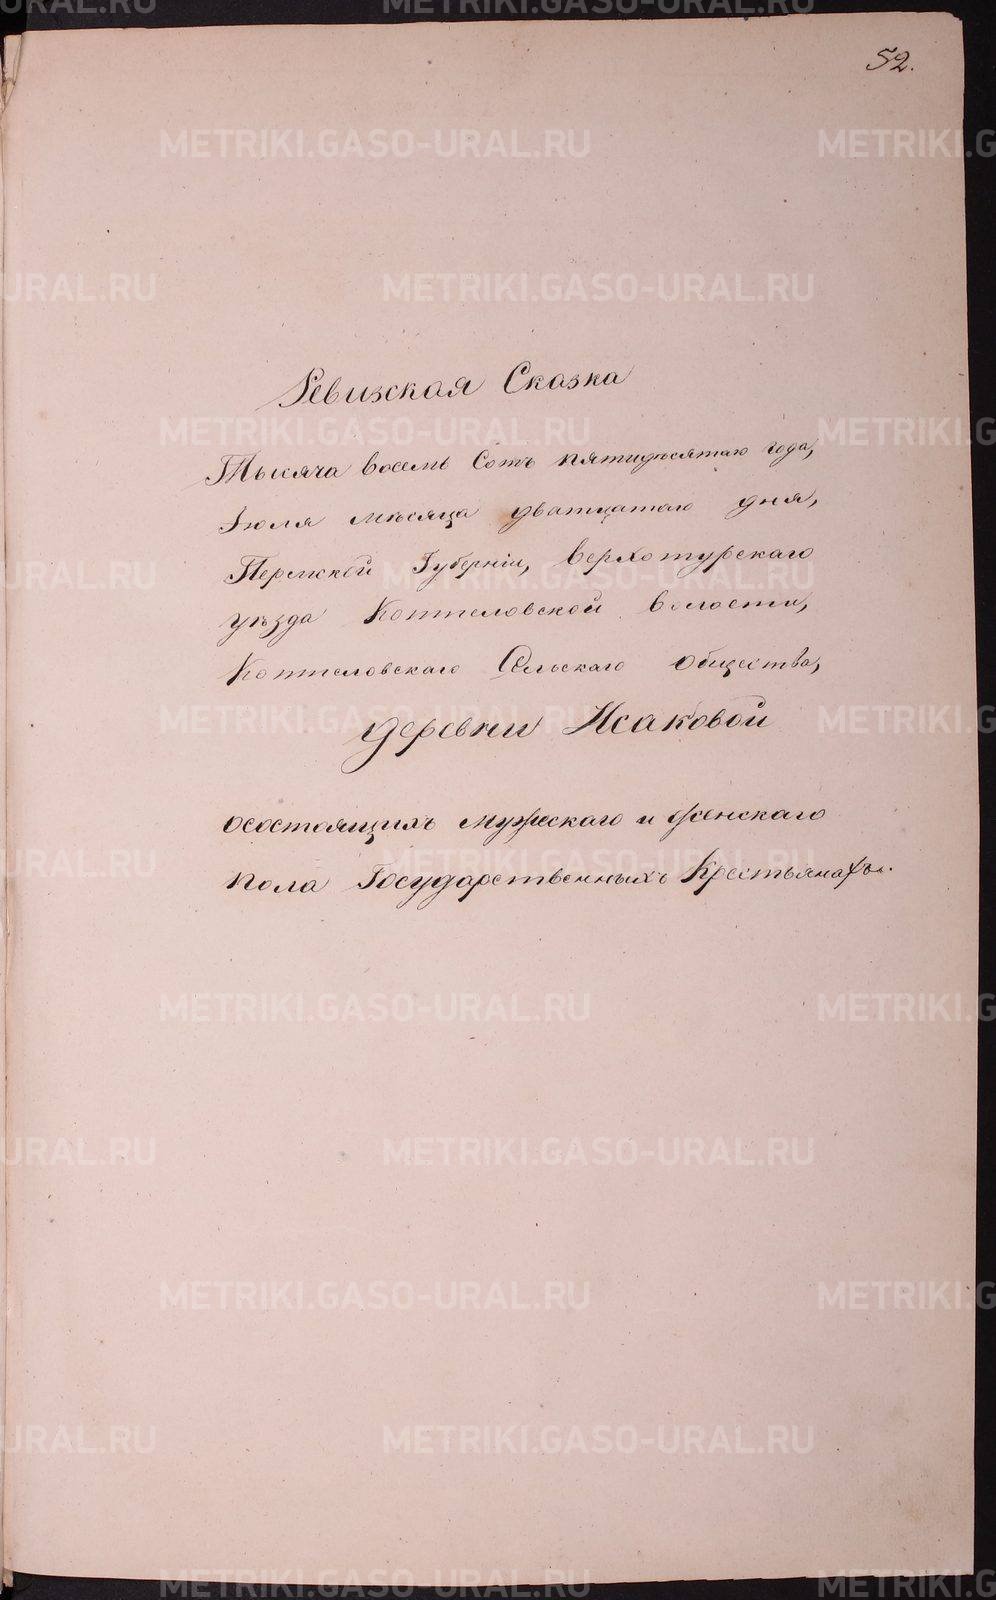 52.
Ревизская Сказка
Тысяча восемь Сотъ пятидесятаго года,
Іюля мѣсяца дватцатаго дня,
Пермской Губерніи, Верхотурскаго
уѣзда Коптеловской волости,
Коптеловскаго Сельскаго Общества,
деревни Исаковой
осостоящихъ мужескаго и женскаго
пола Государственныхъ Крестьянахъ.
METRIKI.GASO-URAL.RU